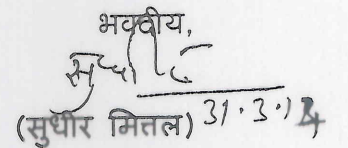 भवदीय,
सुधीर
(सुधीर मित्तल) 31.3.14